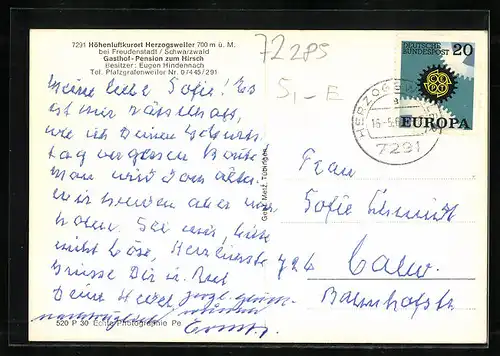 7291 Höhenluftkurort Herzogsweiler 700 m ü. M.
bei Freudenstadt / Schwarzwald
Gasthof-Pension zum Hirsch
Besitzer: Eugen Hindennach
Tel. Pfalzgrafenweiler Nr. 07445/291
72285
5,- E
DEUTSCHE BUNDESPOST 20
EUROPA
HERZOGSW
7291
Meine liebe Sofie! Es
ist mir rätselhaft,
wie ich Deinen Geburts-
tag vergessen konnte
man wird doch älter
wir freuen aber
Sei mir, bitte
nicht böse, Herzlichste
Grüsse Dir u.
Deine
nachträglich
Ernst
Gebr. Metz, Tübingen
Frau
Sofie Schmidt
726 Calw.
Bahnhofstr
520 P 30 Echte Photographie